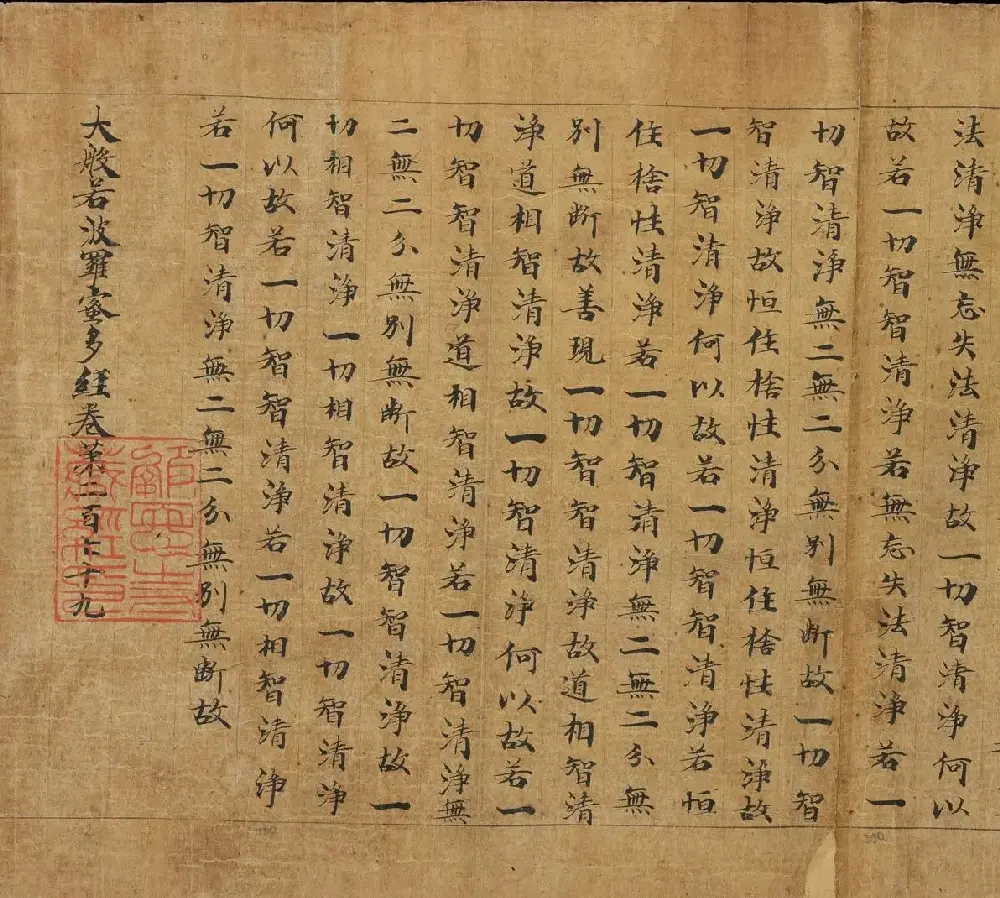 法清淨無忘失法清淨故一切智清淨何以
故若一切智智清淨若無忘失法清淨若一
切智清淨無二無二分無別無斷故一切智
智清淨故恒住捨性清淨恒住捨性清淨故
一切智清淨何以故若一切智智清淨若恒
住捨性清淨若一切智清淨無二無二分無
別無斷故善現一切智智清淨故道相智清
淨道相智清淨故一切智清淨何以故若一
切智智清淨道相智清淨若一切智清淨無
二無二分無別無斷故一切智智清淨故一
切相智清淨一切相智清淨故一切智清淨
何以故若一切智智清淨若一切相智清淨
若一切智清淨無二無二分無別無斷故
大般若波羅蜜多經卷第二百七十九